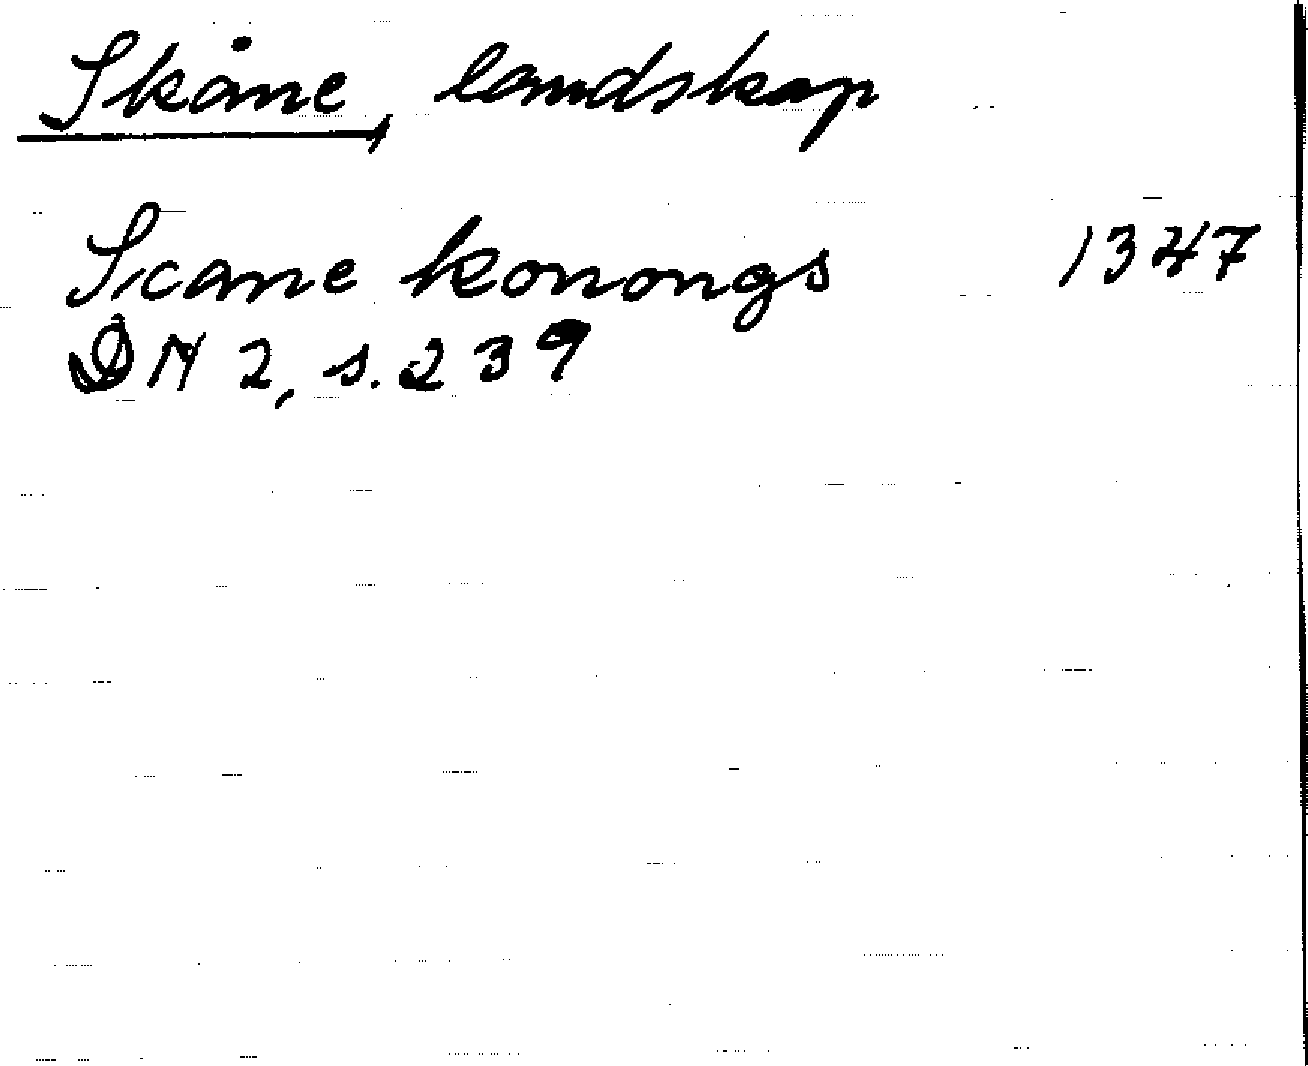 Skåne, landskap
Scane konongs 1347
DN 2, s. 239